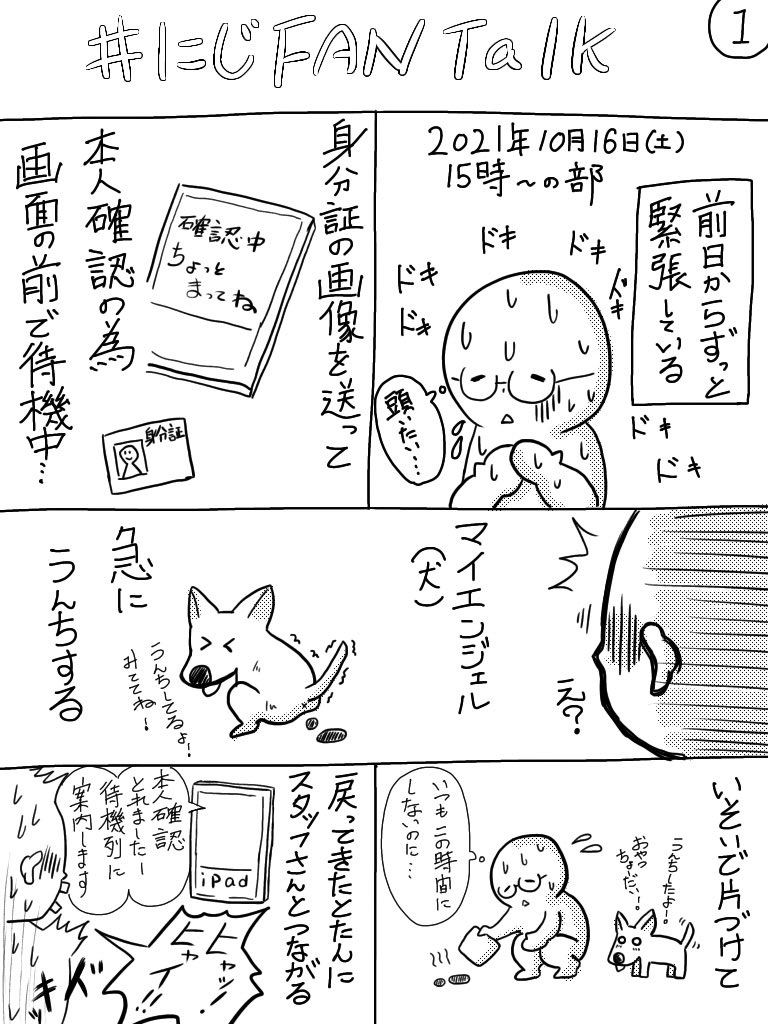 1
#にじFANTalk
2021年10月16日(土)
15時〜の部
前日からずっと
緊張している
ドキ
ドキ
ドキ
ドキ
ドキ
頭いたい…
ドキ
ドキ
身分証の画像を送って
確認中
ちょっと
まってね
身分証
本人確認の為
画面の前で待機中…
え?
マイエンジェル
(犬)
急に
うんちする
うんちしてるよー!
みててね!
いそいで片づけて
うんちしたよー!
おやつ
ちょーだい!
いつもこの時間に
しないのに…
戻ってきたとたんに
スタッフさんとつながる
iPad
本人確認
とれましたー
待機列に
案内します
ヒャッ
ヒャイ
ドキ